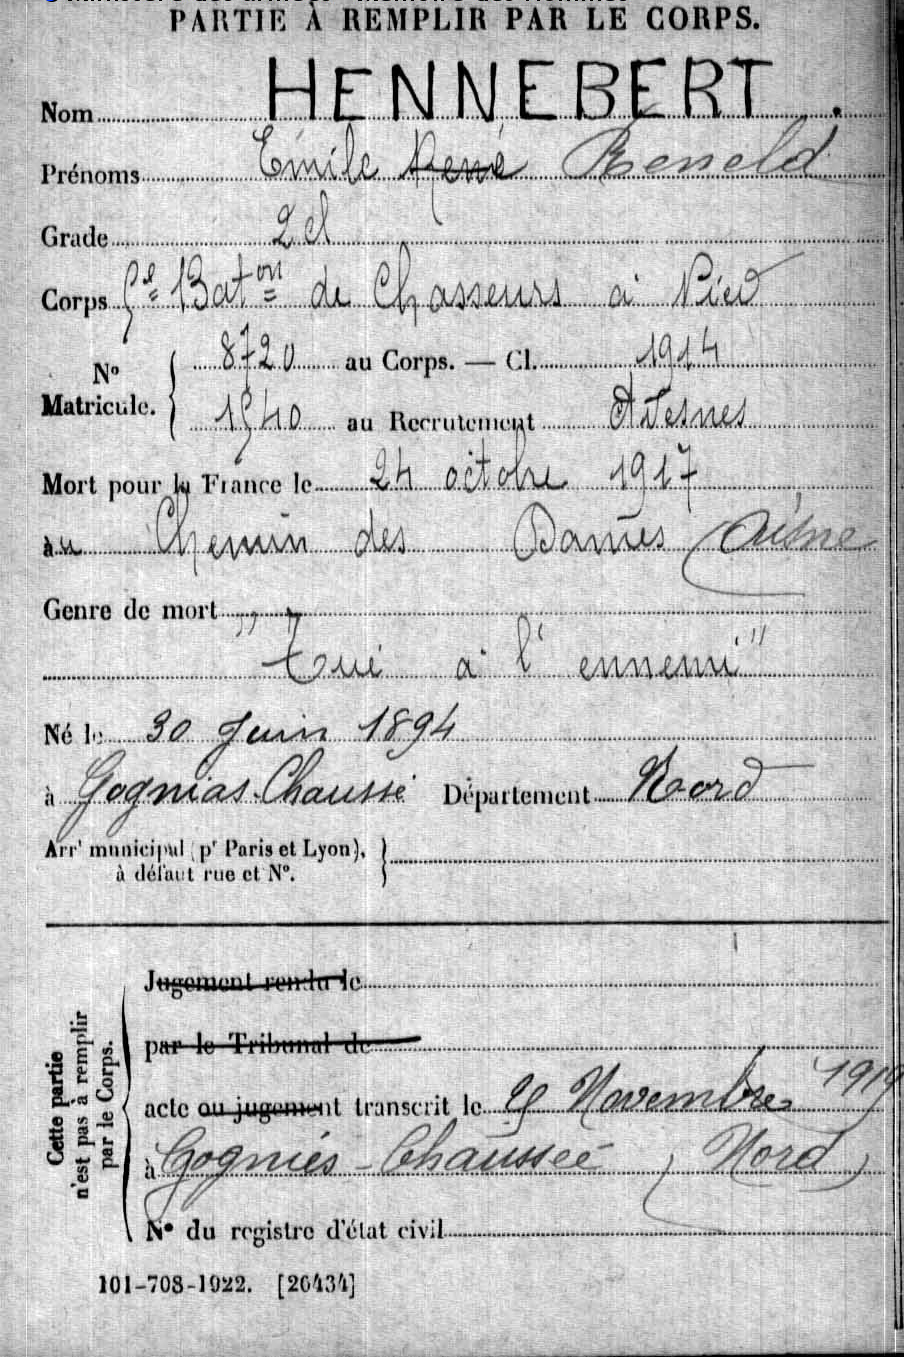 PARTIE À REMPLIR PAR LE CORPS.
Nom HENNEBERT.
Prénoms Émile René Reneld
Grade 2 cl
Corps Baton de Chasseurs à Pied
No Matricule. 8720 au Corps. — Cl. 1914
1540 au Recrutement Avesnes
Mort pour la France le 24 octobre 1917
au Chemin des Dames (Aisne
Genre de mort
"Tué à l'ennemi"
Né le 30 Juin 1894
à Gognias-Chaussé Département Nord
Arrt municipal (pr Paris et Lyon),
à défaut rue et No.
Cette partie n'est pas à remplir par le Corps.
Jugement rendu le
par le Tribunal de
acte ou jugement transcrit le Novembre 1919
à Gogniés-Chaussée (Nord)
No du registre d'état civil
101-708-1922. [26434]